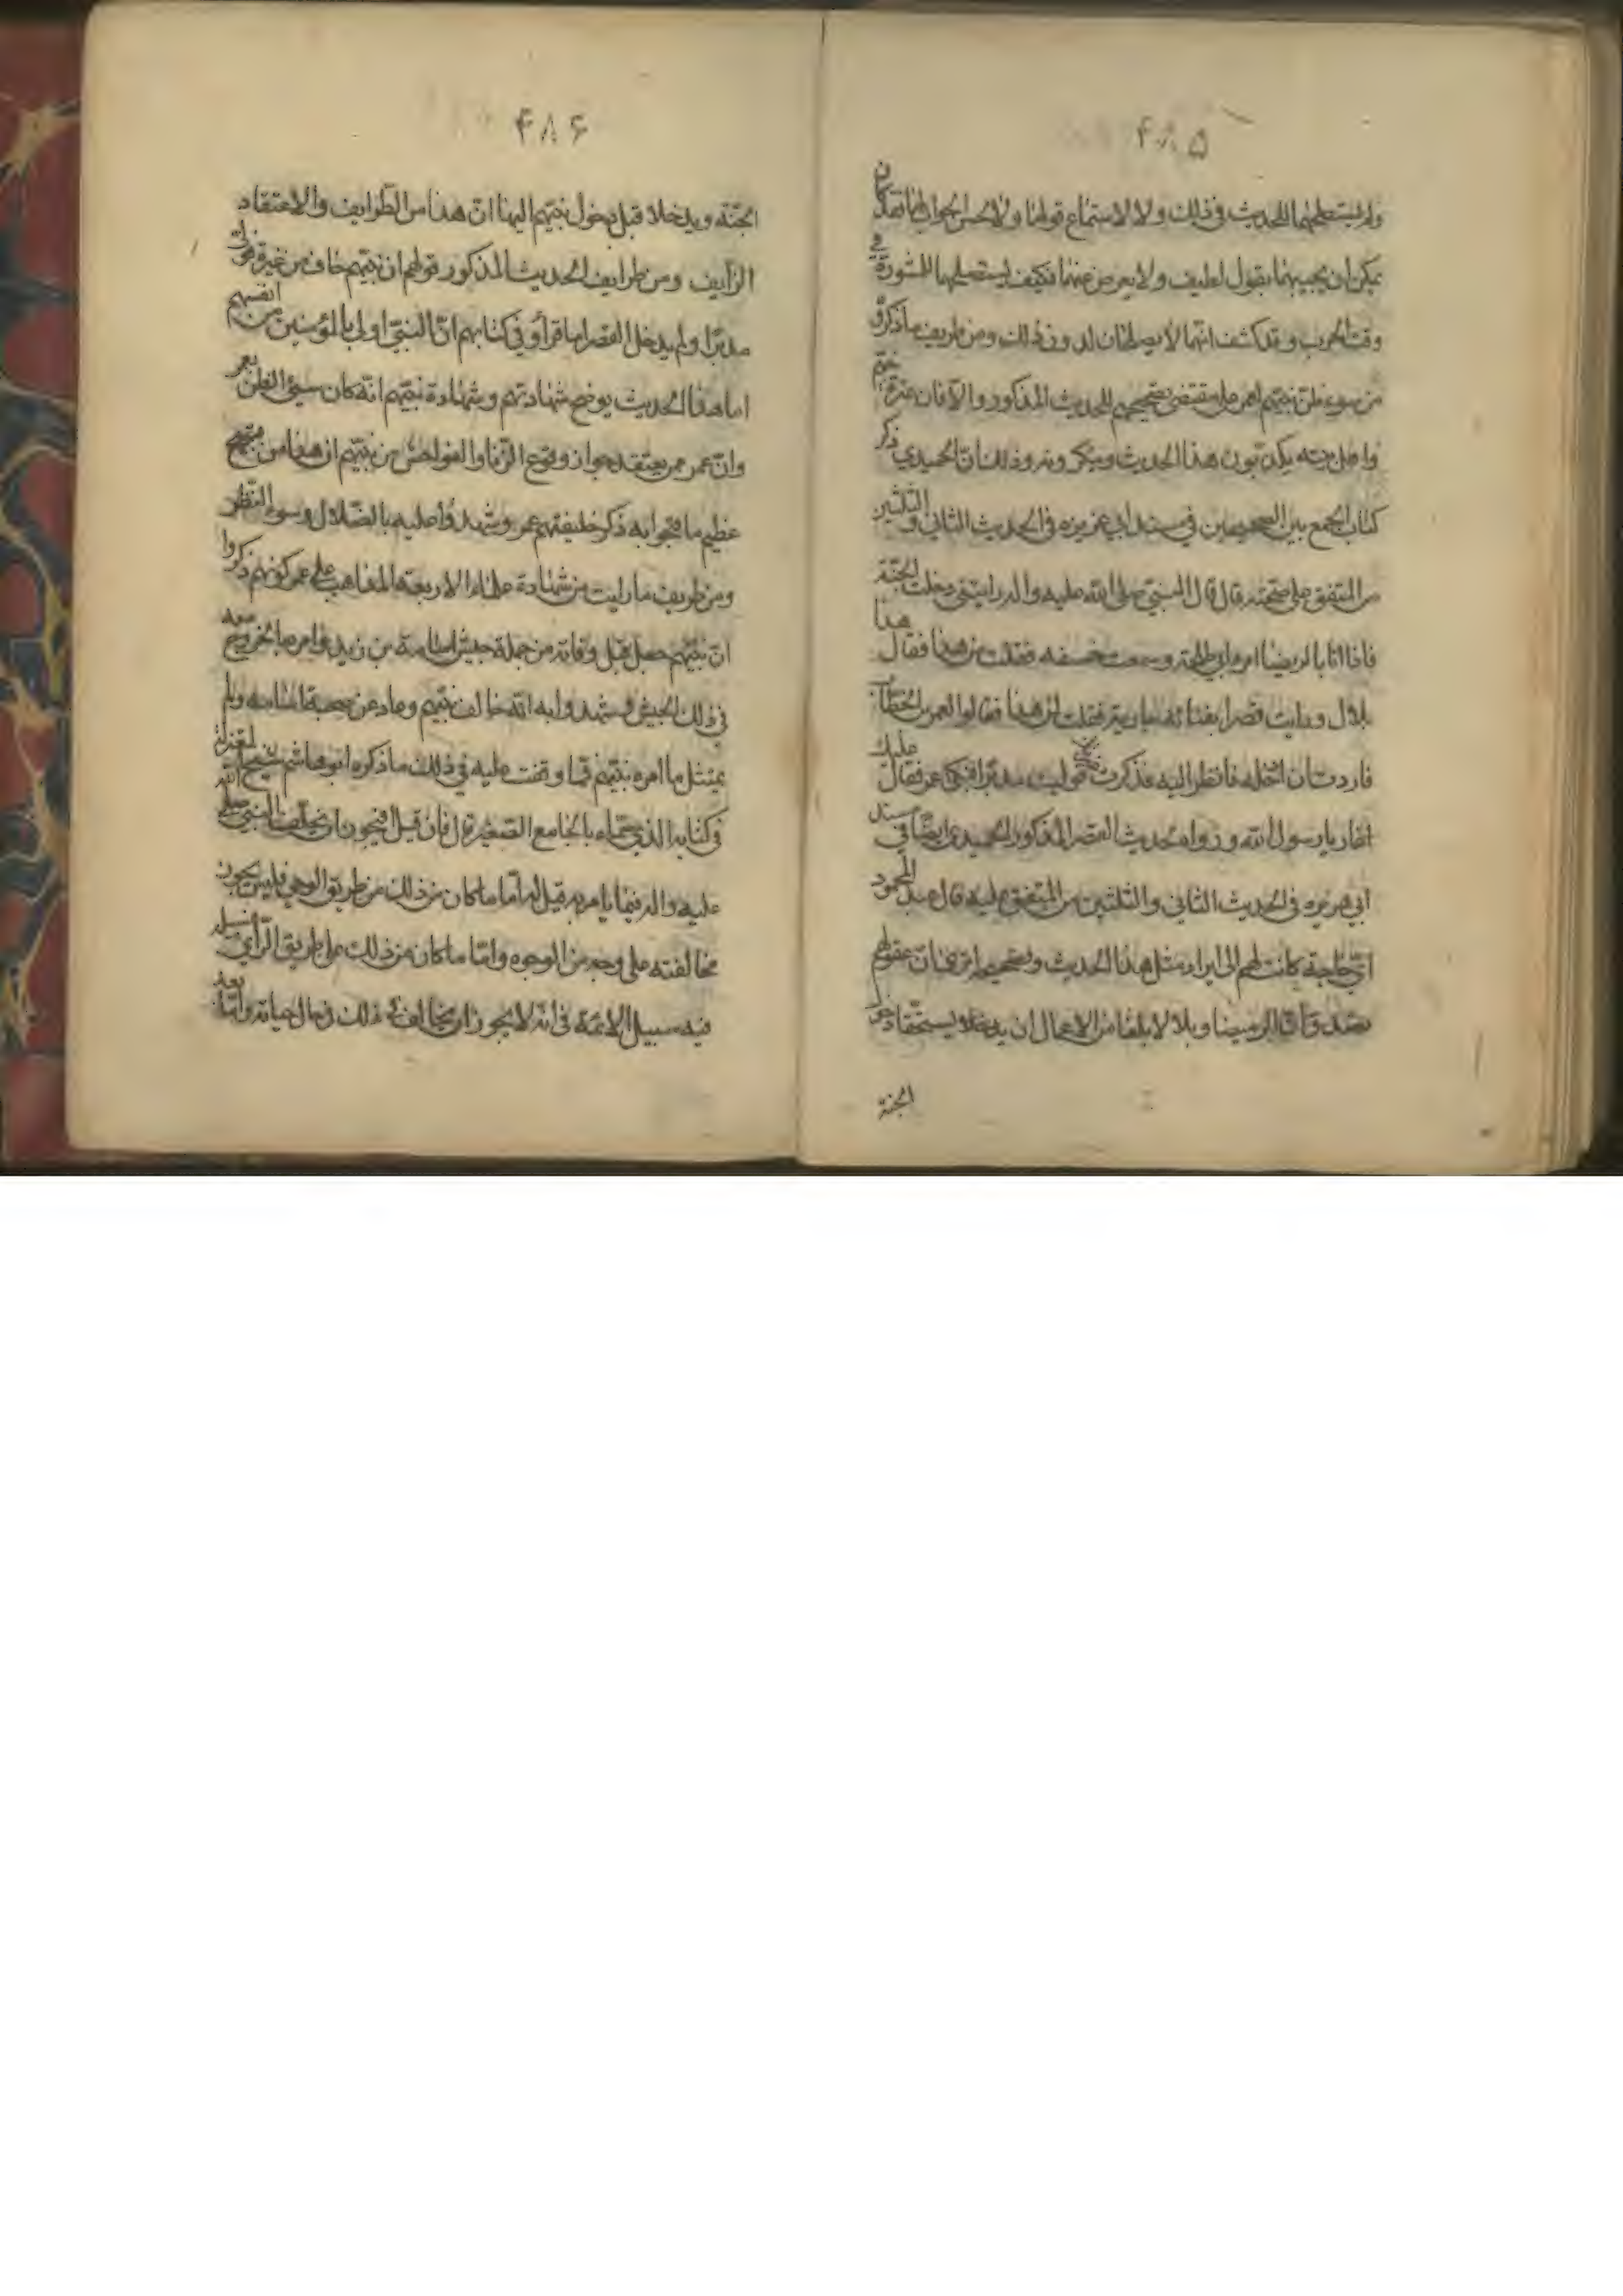 ۴۸۵
ولم يستصلحهما للحديث في ذلك ولا لاستماع قولهما ولا لحسن الجواب لهما فقد كان
يمكن ان يجيبهما بقول لطيف ولا يعرض عنهما فكيف يستصلحهما للمشورة في
وقت الحرب وقد كشف انهما لا يصلحان لدون ذلك ومن طريف ما ذكروه
من سوء ظن نبيهم بعمر على مقتضى تصحيحهم للحديث المذكور والا فان عترة نبيهم
واهل بيته يكذبون هذا الحديث وينكرونه وذلك ان الحميدي ذكر
كتاب الجمع بين الصحيحين في مسند ابي هريره في الحديث الثاني والثلثين
من المتفق على صحته قال قال النبي صلى الله عليه واله رايتني دخلت الجنة
فاذا انا بالرميضا امراة ابي طلحة وسمعت خشفه فقلت من هذا فقال هذا
بلال ورايت قصرا بفنائه جارية فقلت لمن هذا فقالوا لعمر بن الخطاب
فاردت ان ادخله فانظر اليه فذكرت غيرتك فوليت مدبرا فبكى عمر فقال عليك
اغار يا رسول الله وروا حديث القصر المذكور الحميدي ايضا في مسند
ابي هريره في الحديث الثاني والثلثين من المتفق عليه قال عبد المحمود
اي حاجة كانت لهم الى ايراد مثل هذا الحديث وتصحيحه اترى ان عقولهم
تصدق ان الرميضا وبلالا بلغا من الاعمال ان يدخلا ويستحقا دخول
الجنة
۴۸۶
الجنة ويدخلا قبل دخول نبيهم اليها ان هذا من الطرايف والاعتقاد
الزايف ومن طرايف الحديث المذكور قولهم ان نبيهم خاف من غيرة عمر فولى
مدبرا ولم يدخل القصر اما قرأوا في كتابهم ان النبي اولى بالمؤمنين من انفسهم
اما هذا الحديث يوضح شهادتهم وشهادة نبيهم انه كان سيئ الظن بعمر
وان عمر ممن يعتقد جواز وقوع الزنا والفواحش من نبيهم ان هذا من قبيح
عظيم ما قبحوا به ذكر خليفتهم عمر وشهدوا عليه بالضلال وسوء النظر
ومن طريف ما رايت من شهادة علماء الاربعة المذاهب على عمر كونهم ذكروا
ان نبيهم جعل قبل وفاته من جملة جيش اسامة بن زيد وامره بالخروج معه
في ذلك الجيش وشهدوا به انه خالف نبيهم وعاد عن صحبة اسامه ولم
يمتثل ما امره نبيهم فمما وقفت عليه في ذلك ما ذكره ابو هاشم شيخ المعتزلة
في كتابه الذي سماه بالجامع الصغير قال فان قيل افيجوز ان يخالف النبي صلى الله
عليه واله فيما يامر به قيل له اما ما كان من ذلك من طريق الوحي فليس يجوز
مخالفته على وجه من الوجوه واما ما كان من ذلك على طريق الراي فسبيله
فيه سبيل الائمة في انه لا يجوز ان يخالف في ذلك في حال حياته واما بعد